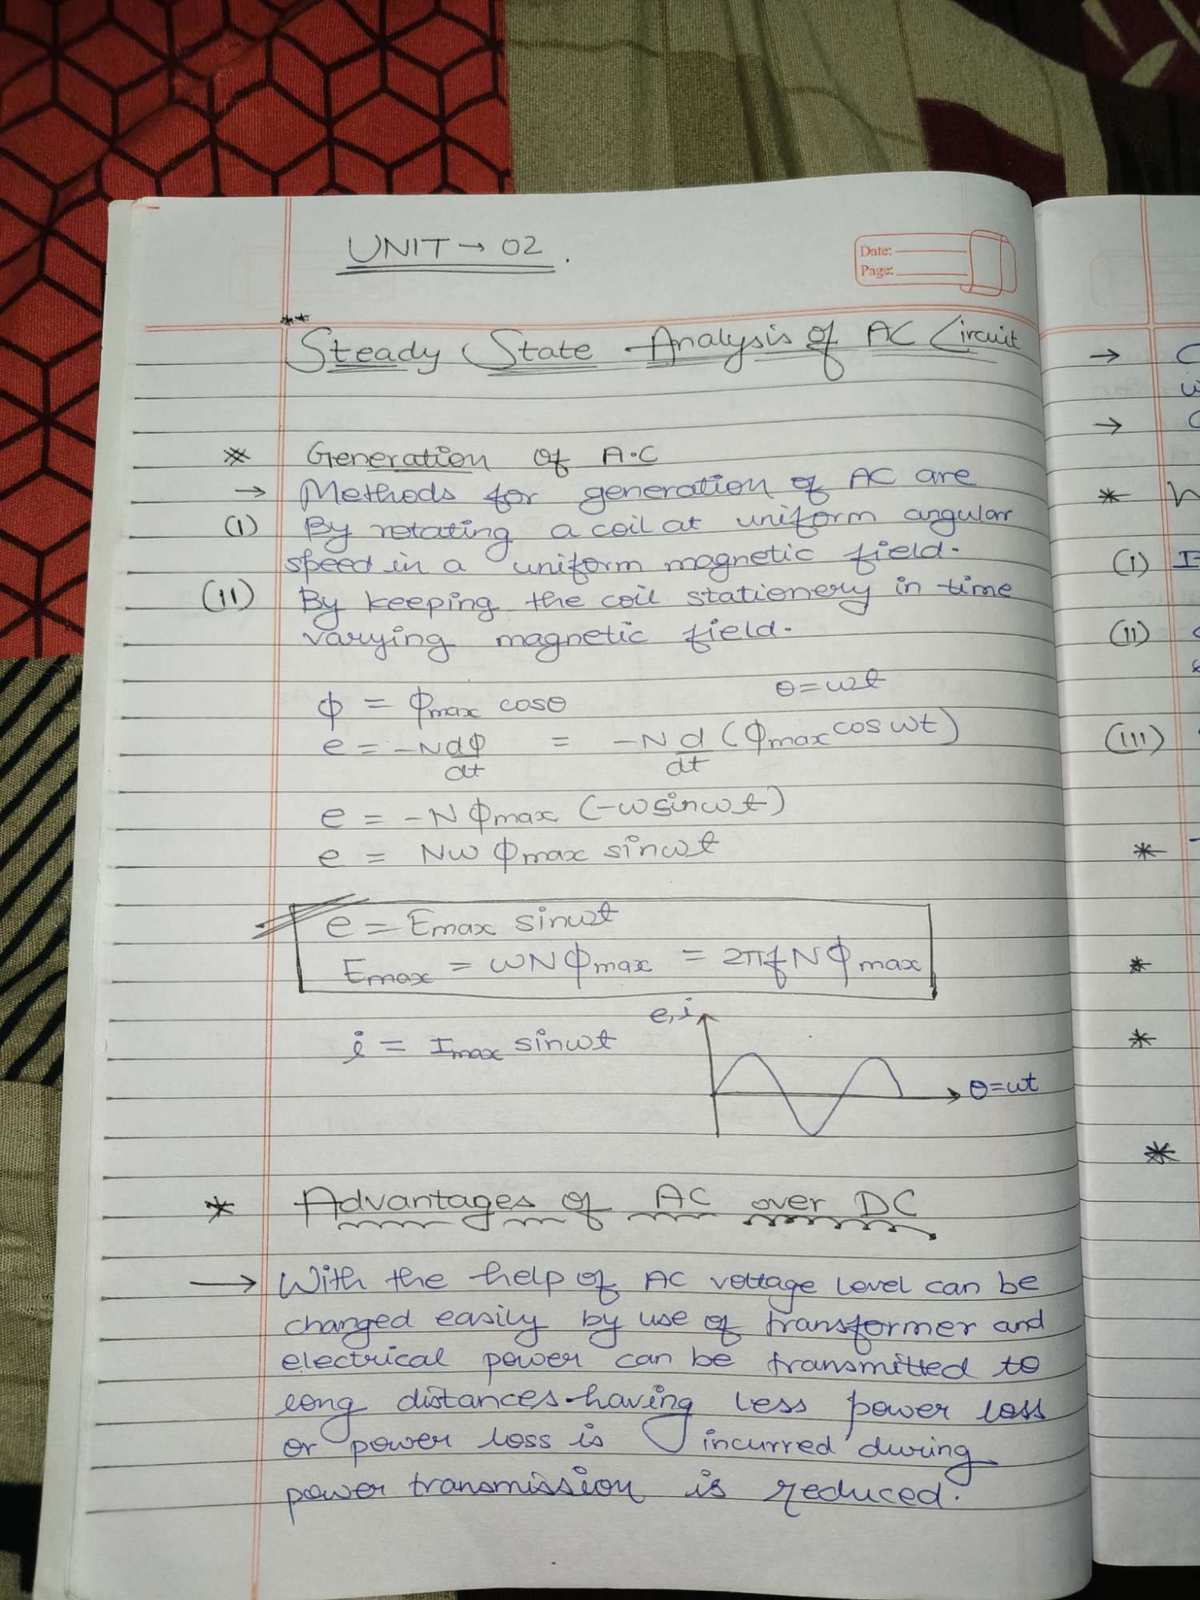 UNIT → 02.
Date:
Page:
** Steady State Analysis of AC Circuit
* Generation of A.C
→ Methods for generation of AC are
(I) By rotating a coil at uniform angular
speed in a uniform magnetic field.
(II) By keeping the coil stationery in time
varying magnetic field.
θ=ωt
ϕ = ϕmax cosθ
e = -Ndϕ/dt = -N d/dt (ϕmax cos ωt)
e = -N ϕmax (-ω sin ωt)
e = Nω ϕmax sin ωt
e = Emax sin ωt
Emax = ωNϕmax = 2πfNϕmax
e,i
i = Imax sin ωt
θ=ωt
* Advantages of AC over DC
→ With the help of AC voltage level can be
changed easily by use of transformer and
electrical power can be transmitted to
long distances having less power loss
or power loss is incurred during
power transmission is reduced.
→
→
*
(I)
(II)
(III)
*
*
*
*